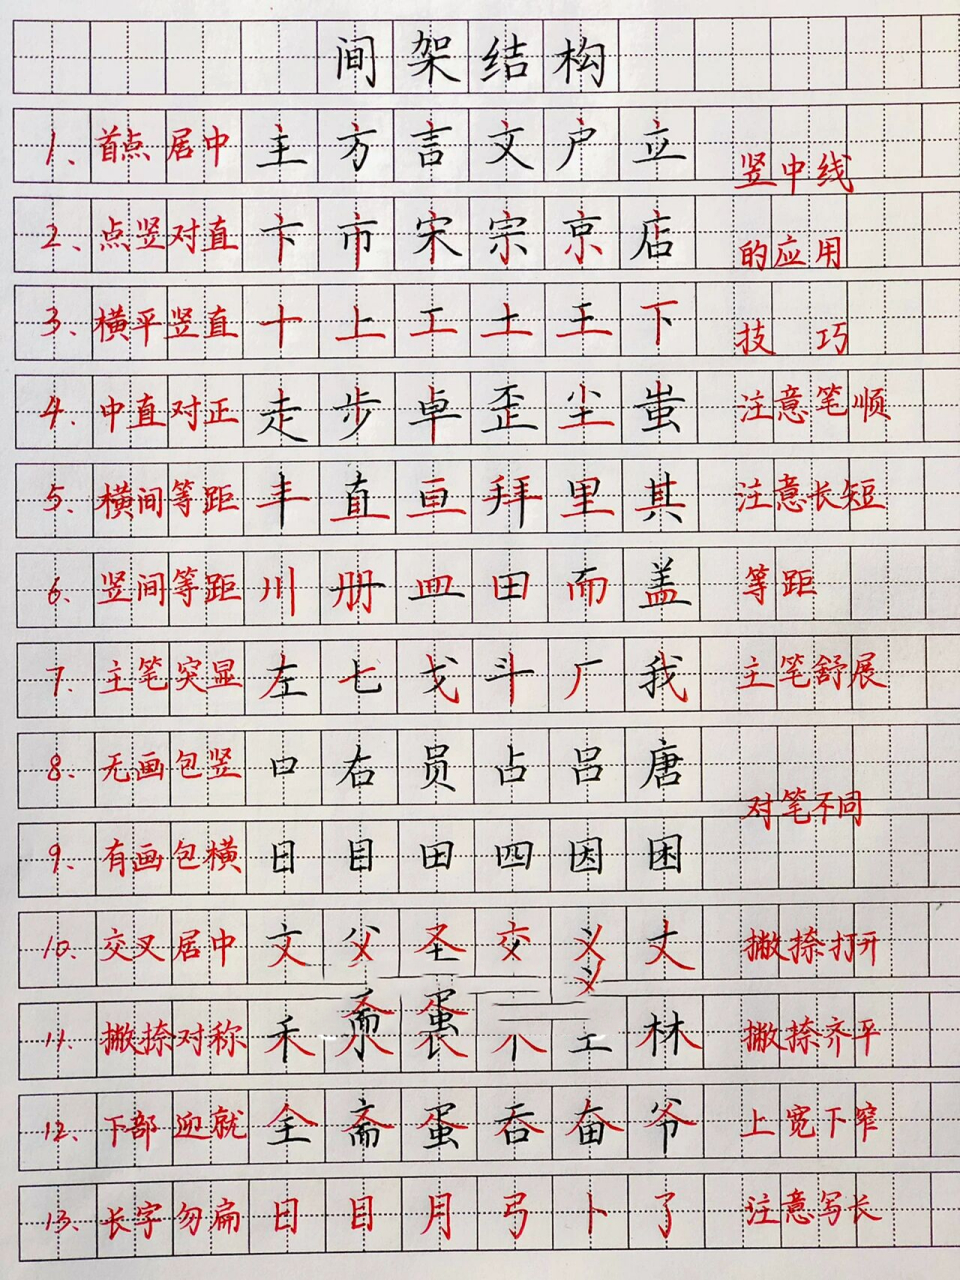 间架结构
1、首点居中 主方言文户立 竖中线
2、点竖对直 卞市宋宗京店 的应用
3、横平竖直 十上工土王下 技巧
4、中直对正 走步卓歪尘蚩 注意笔顺
5、横间等距 丰直亘拜里其 注意长短
6、竖间等距 川册皿田而盖 等距
7、主笔突显 左七戈斗厂我 主笔舒展
8、无画包竖 口右员占吕唐
对笔不同
9、有画包横 日目田四因困
10、交叉居中 文父圣交义丈 撇捺打开
11、撇捺对称 禾 林 撇捺齐平
12、下部迎就 全斋蛋吞奋爷 上宽下窄
13、长字勿扁 日目月弓卜了 注意写长